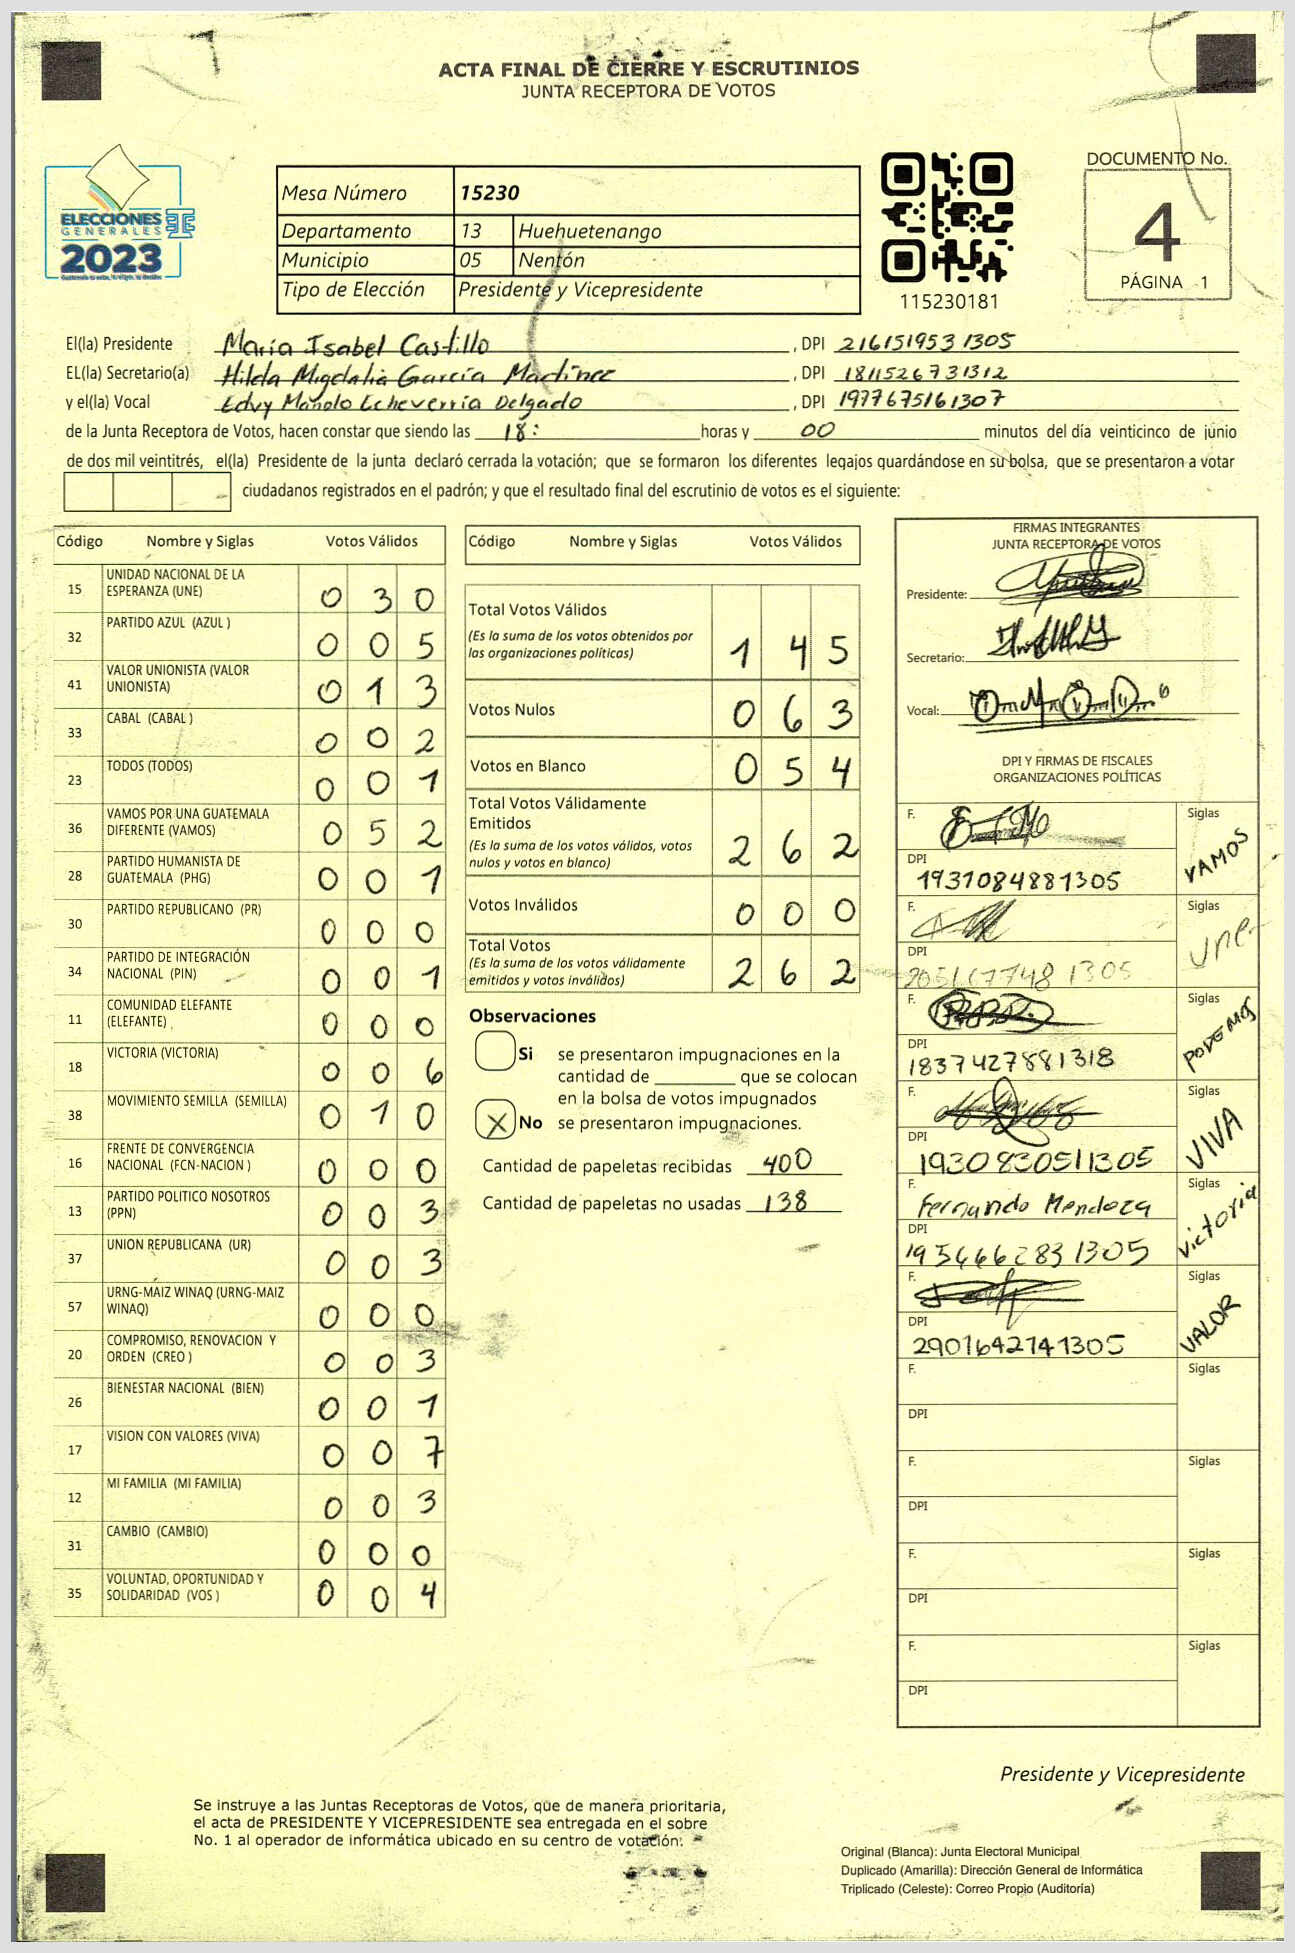 ACTA FINAL DE CIERRE Y ESCRUTINIOS
JUNTA RECEPTORA DE VOTOS
ELECCIONES
GENERALES
2023
Mesa Número 15230
Departamento 13 Huehuetenango
Municipio 05 Nentón
Tipo de Elección Presidente y Vicepresidente
115230181
DOCUMENTO No.
4
PÁGINA 1
El(la) Presidente María Isabel Castillo , DPI 216151953 1305
EL(la) Secretario(a) Hilda Migdalia García Martínez , DPI 1811526731312
y el(la) Vocal Edvy Manolo Echeverría Delgado , DPI 1977675161307
de la Junta Receptora de Votos, hacen constar que siendo las 18: horas y 00 minutos del día veinticinco de junio
de dos mil veintitrés, el(la) Presidente de la junta declaró cerrada la votación; que se formaron los diferentes legajos quardándose en su bolsa, que se presentaron a votar
ciudadanos registrados en el padrón; y que el resultado final del escrutinio de votos es el siguiente:
Código Nombre y Siglas Votos Válidos
15 UNIDAD NACIONAL DE LA ESPERANZA (UNE) 0 3 0
32 PARTIDO AZUL (AZUL ) 0 0 5
41 VALOR UNIONISTA (VALOR UNIONISTA) 0 1 3
33 CABAL (CABAL ) 0 0 2
23 TODOS (TODOS) 0 0 1
36 VAMOS POR UNA GUATEMALA DIFERENTE (VAMOS) 0 5 2
28 PARTIDO HUMANISTA DE GUATEMALA (PHG) 0 0 1
30 PARTIDO REPUBLICANO (PR) 0 0 0
34 PARTIDO DE INTEGRACIÓN NACIONAL (PIN) 0 0 1
11 COMUNIDAD ELEFANTE (ELEFANTE) 0 0 0
18 VICTORIA (VICTORIA) 0 0 6
38 MOVIMIENTO SEMILLA (SEMILLA) 0 1 0
16 FRENTE DE CONVERGENCIA NACIONAL (FCN-NACION ) 0 0 0
13 PARTIDO POLITICO NOSOTROS (PPN) 0 0 3
37 UNION REPUBLICANA (UR) 0 0 3
57 URNG-MAIZ WINAQ (URNG-MAIZ WINAQ) 0 0 0
20 COMPROMISO, RENOVACION Y ORDEN (CREO ) 0 0 3
26 BIENESTAR NACIONAL (BIEN) 0 0 1
17 VISION CON VALORES (VIVA) 0 0 7
12 MI FAMILIA (MI FAMILIA) 0 0 3
31 CAMBIO (CAMBIO) 0 0 0
35 VOLUNTAD, OPORTUNIDAD Y SOLIDARIDAD (VOS ) 0 0 4
Código Nombre y Siglas Votos Válidos
Total Votos Válidos 1 4 5
(Es la suma de los votos obtenidos por
las organizaciones políticas)
Votos Nulos 0 6 3
Votos en Blanco 0 5 4
Total Votos Válidamente
Emitidos 2 6 2
(Es la suma de los votos válidos, votos
nulos y votos en blanco)
Votos Inválidos 0 0 0
Total Votos 2 6 2
(Es la suma de los votos válidamente
emitidos y votos inválidos)
Observaciones
Si se presentaron impugnaciones en la
cantidad de ________ que se colocan
en la bolsa de votos impugnados
X No se presentaron impugnaciones.
Cantidad de papeletas recibidas 400
Cantidad de papeletas no usadas 138
FIRMAS INTEGRANTES
JUNTA RECEPTORA DE VOTOS
Presidente:
Secretario:
Vocal:
DPI Y FIRMAS DE FISCALES
ORGANIZACIONES POLÍTICAS
F. Siglas VAMOS
DPI 1931084881305
F. Siglas une
DPI 1305
F. Siglas PODEMOS
DPI 1837427881318
F. Siglas VIVA
DPI 1930830511305
F. Fernando Mendoza Siglas victoria
DPI 1954662831305
F. Siglas VALOR
DPI 2901642141305
F. Siglas
DPI
F. Siglas
DPI
F. Siglas
DPI
F. Siglas
DPI
Presidente y Vicepresidente
Se instruye a las Juntas Receptoras de Votos, que de manera prioritaria,
el acta de PRESIDENTE Y VICEPRESIDENTE sea entregada en el sobre
No. 1 al operador de informática ubicado en su centro de votación.
Original (Blanca): Junta Electoral Municipal
Duplicado (Amarilla): Dirección General de Informática
Triplicado (Celeste): Correo Propio (Auditoría)